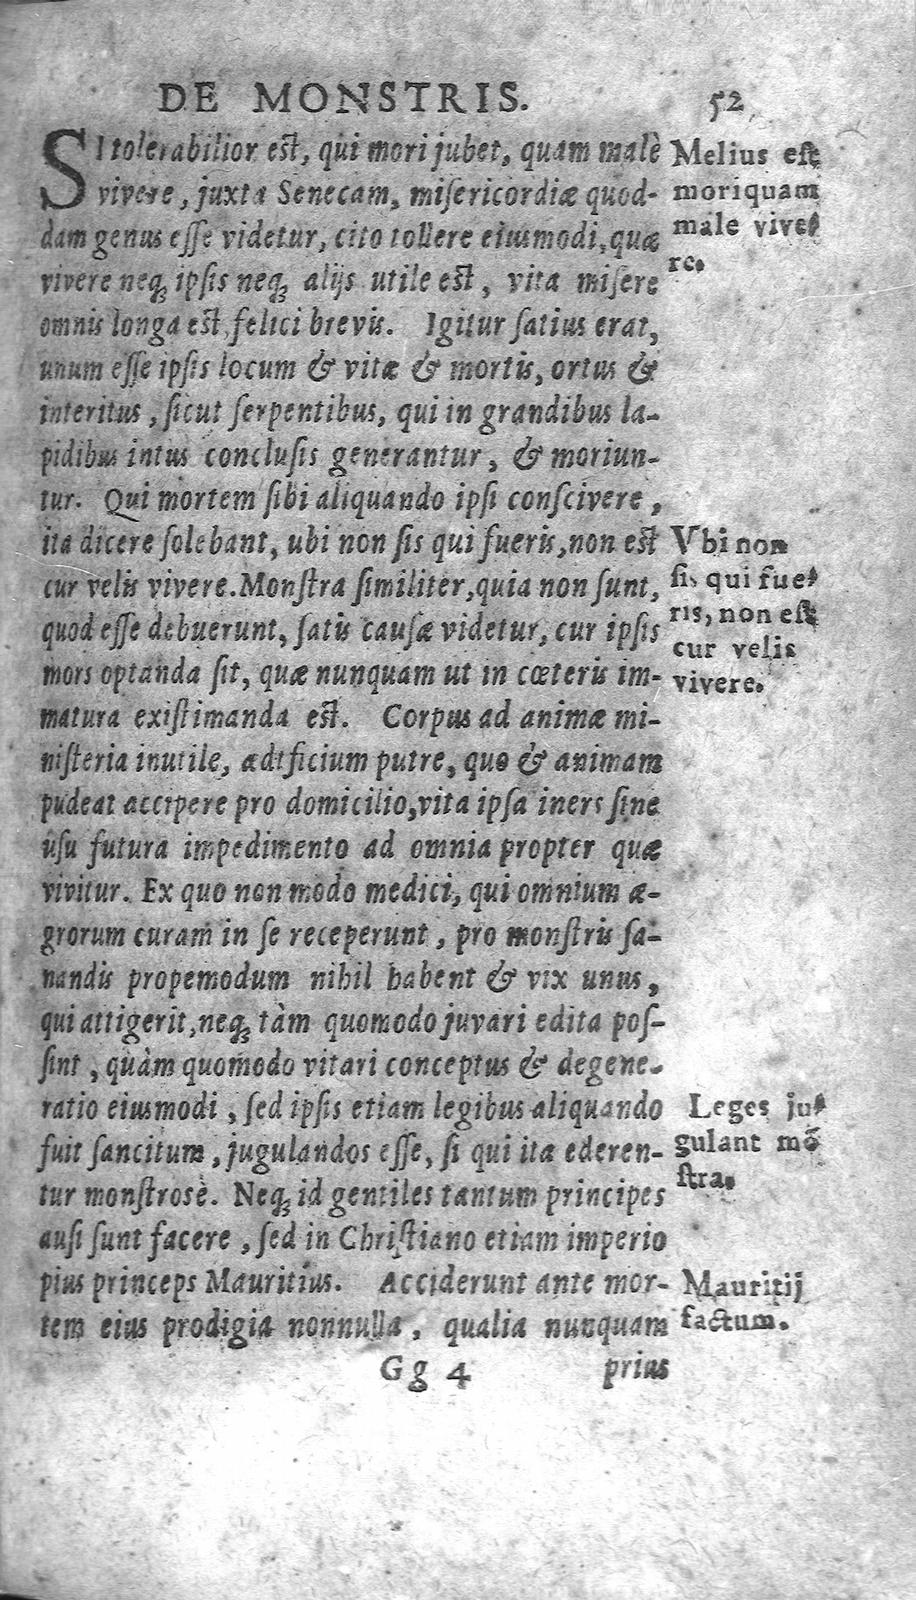 DE MONSTRIS. 52
SI tolerabilior est, qui mori jubet, quam malè
vivere, juxta Senecam, misericordiæ quod-
dam genus esse videtur, cito tollere eiusmodi, quæ
vivere neq; ipsis neq; alijs utile est, vita misere
omnis longa est felici brevis. Igitur satius erat,
unum esse ipsis locum & vitæ & mortis, ortus &
interitus, sicut serpentibus, qui in grandibus la-
pidibus intus conclusis generantur, & moriun-
tur. Qui mortem sibi aliquando ipsi conscivere,
ita dicere solebant, ubi non sis qui fueris, non est
cur velis vivere. Monstra similiter, quia non sunt,
quod esse debuerunt, satis causæ videtur, cur ipsis
mors optanda sit, quæ nunquam ut in cœteris im-
matura existimanda est. Corpus ad animæ mi-
nisteria inutile, ædificium putre, quo & animam
pudeat accipere pro domicilio, vita ipsa iners sine
usu futura impedimento ad omnia propter quæ
vivitur. Ex quo non modo medici, qui omnium æ-
grorum curam in se receperunt, pro monstris sa-
nandis propemodum nihil habent & vix unus,
qui attigerit, neq; tàm quomodo juvari edita pos-
sint, quàm quomodo vitari conceptus & degene-
ratio eiusmodi, sed ipsis etiam legibus aliquando
fuit sancitum, jugulandos esse, si qui ita ederen-
tur monstrosè. Neq; id gentiles tantum principes
ausi sunt facere, sed in Christiano etiam imperio
pius princeps Mauritius. Acciderunt ante mor-
tem eius prodigia nonnulla, qualia nunquam
Gg 4 prius
Melius est
mori quam
male vive-
re.
Vbi non
sis qui fue-
ris, non est
cur velis
vivere.
Leges ju-
gulant mõ
stra.
Mauritij
factum.